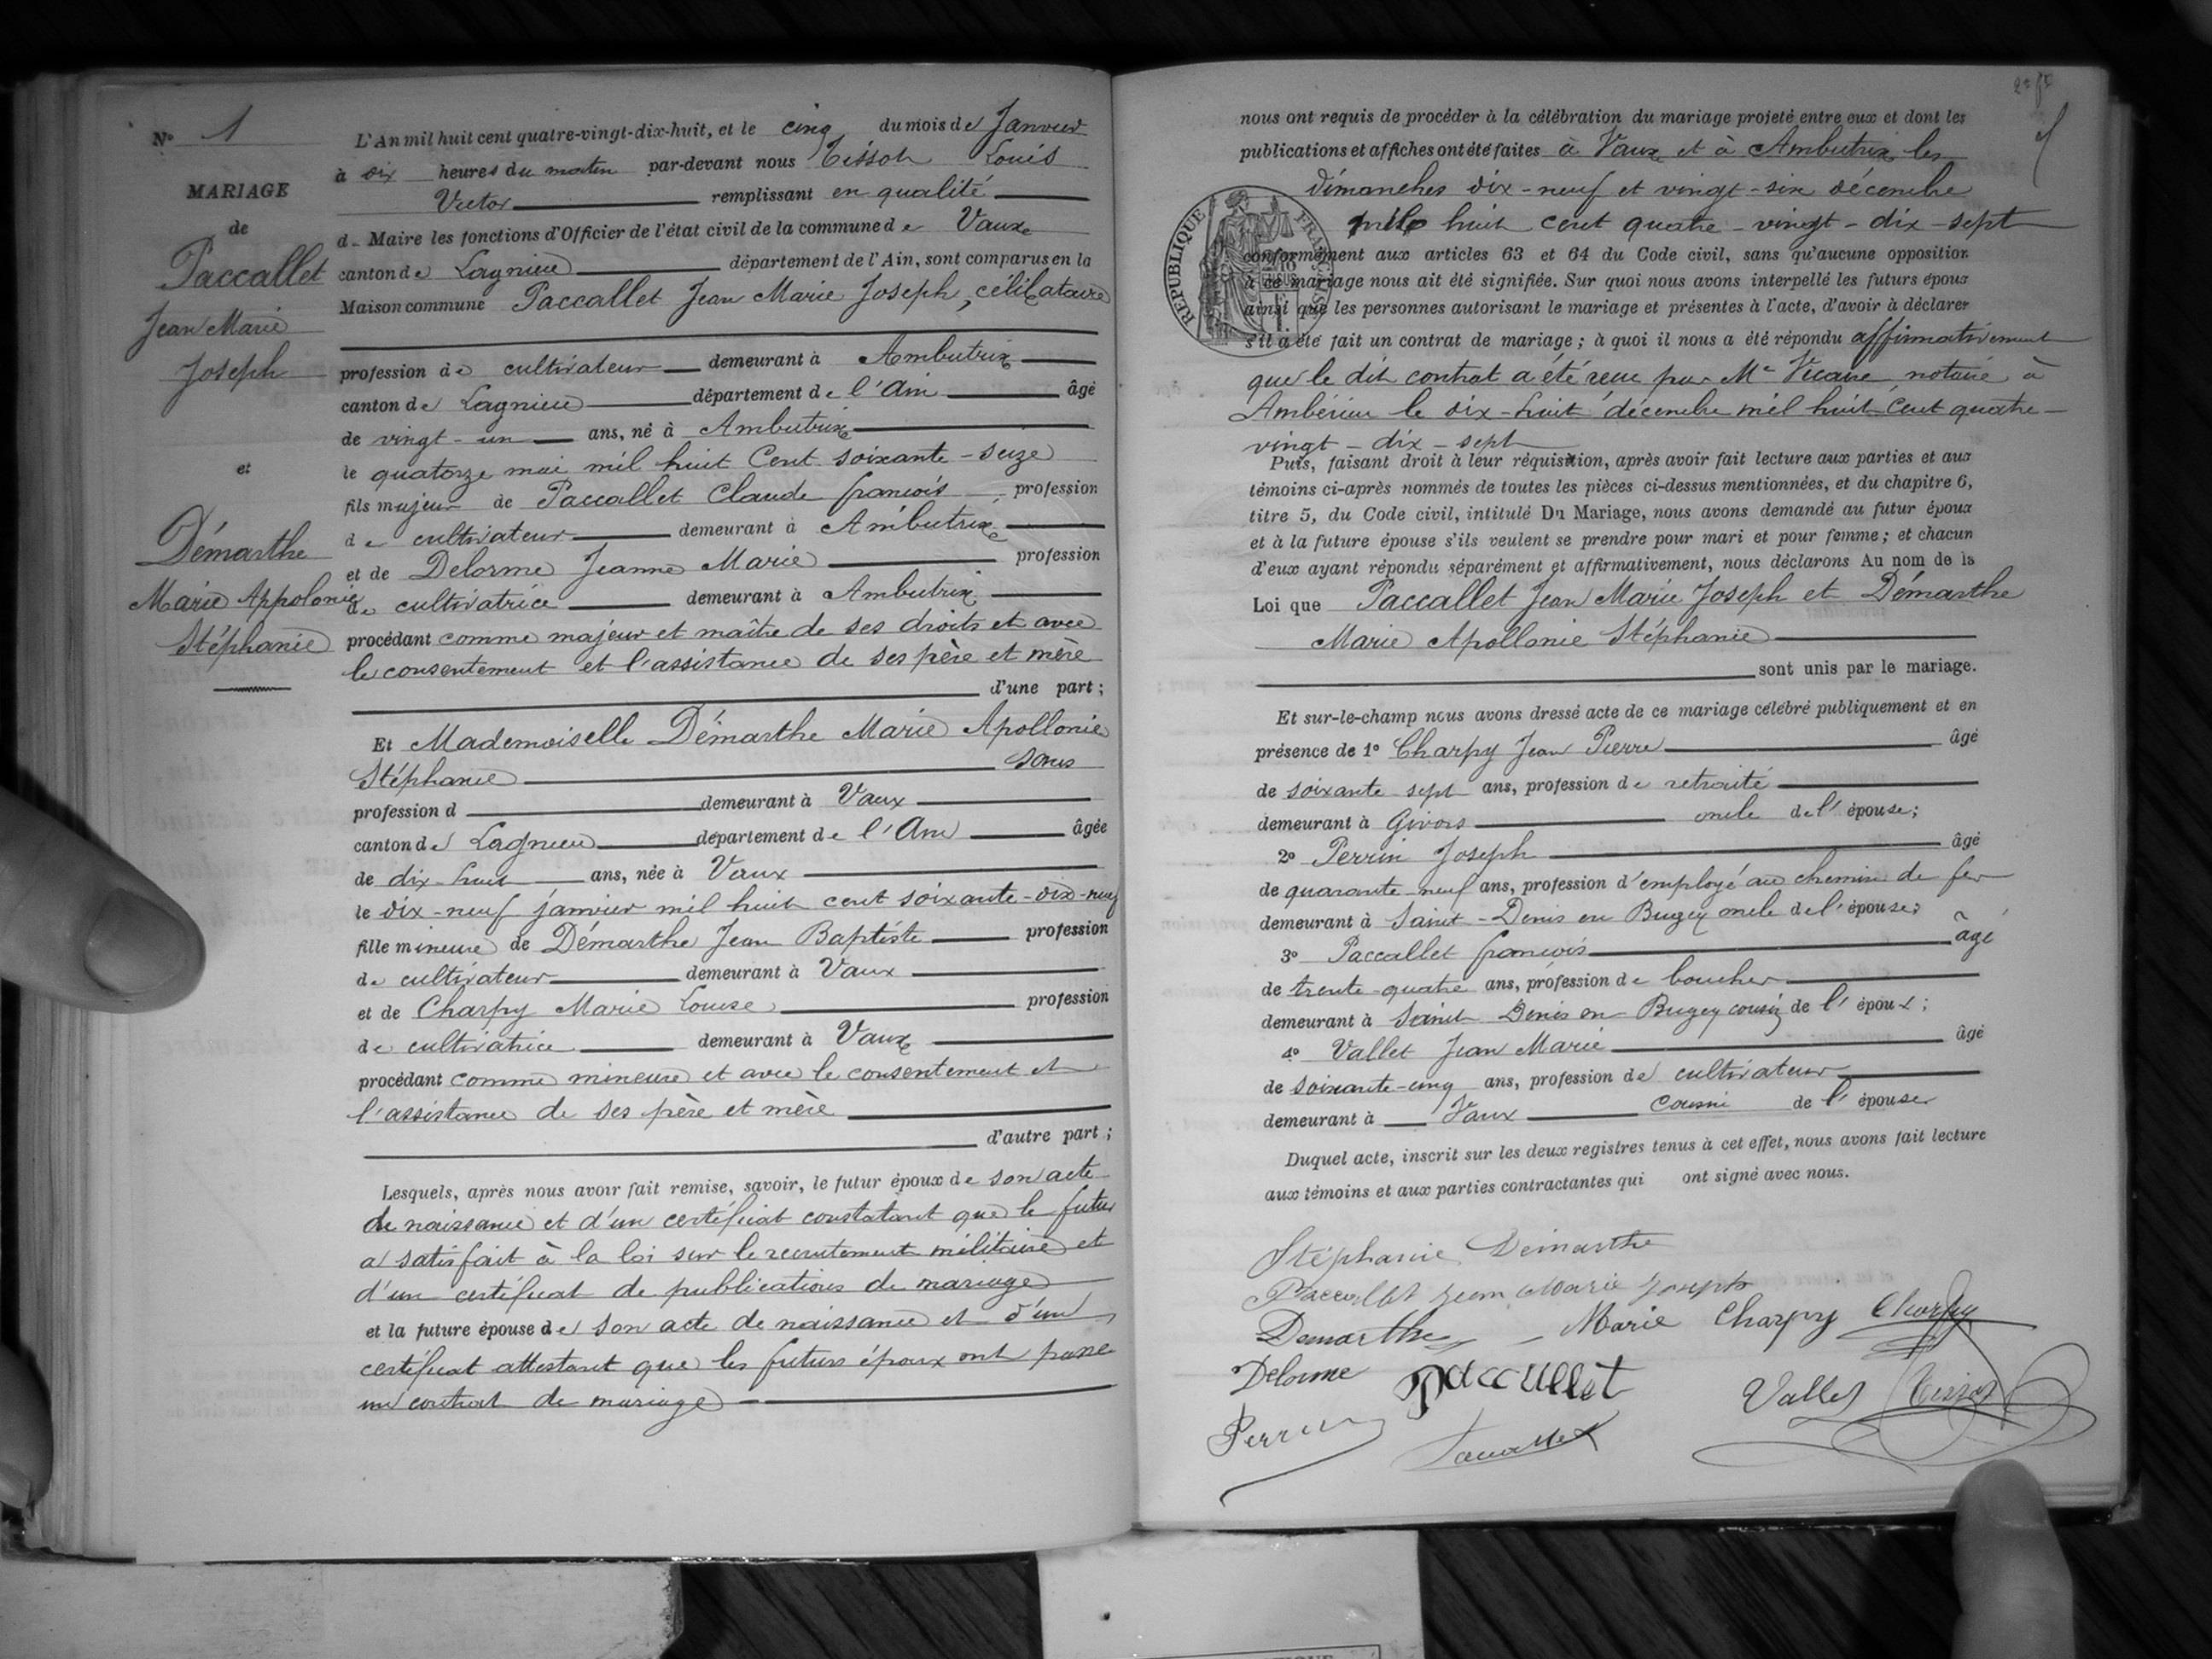 N° 1
MARIAGE
de
Paccallet
Jean Marie
Joseph
et
Démarthe
Marie Appolonie
Stéphanie
L'An mil huit cent quatre-vingt-dix-huit, et le cinq du mois de Janvier
à dix heures du matin par-devant nous Tissot Louis
Victor remplissant en qualité
d Maire les fonctions d'Officier de l'état civil de la commune de Vaux
canton de Lagnieu département de l'Ain, sont comparus en la
Maison commune Paccallet Jean Marie Joseph, célibataire
profession de cultivateur demeurant à Ambutrix
canton de Lagnieu département de l'Ain âgé
de vingt-un ans, né à Ambutrix
le quatorze mai mil huit Cent soixante-seize
fils majeur de Paccallet Claude françois, profession
de cultivateur demeurant à Ambutrix
et de Delorme Jeanne Marie profession
de cultivatrice demeurant à Ambutrix
procédant comme majeur et maître de ses droits et avec
le consentement et l'assistance de ses père et mère
d'une part ;
Et Mademoiselle Démarthe Marie Apollonie
Stéphanie sans
profession d demeurant à Vaux
canton de Lagnieu département de l'Ain âgée
de dix-huit ans, née à Vaux
le dix-neuf janvier mil huit cent soixante-dix-neuf
fille mineure de Démarthe Jean Baptiste profession
de cultivateur demeurant à Vaux
et de Charpy Marie Louise profession
de cultivatrice demeurant à Vaux
procédant comme mineure et avec le consentement et
l'assistance de ses père et mère
d'autre part ;
Lesquels, après nous avoir fait remise, savoir, le futur époux de son acte
de naissance et d'un certificat constatant que le futur
a satisfait à la loi sur le recrutement militaire et
d'un certificat de publications de mariage
et la future épouse de son acte de naissance et d'un
certificat attestant que les futurs époux ont passé
un contrat de mariage
nous ont requis de procéder à la célébration du mariage projeté entre eux et dont les
publications et affiches ont été faites à Vaux et à Ambutrix les
dimanches dix-neuf et vingt-six décembre
mil huit cent quatre-vingt-dix-sept
conformément aux articles 63 et 64 du Code civil, sans qu'aucune opposition
à ce mariage nous ait été signifiée. Sur quoi nous avons interpellé les futurs époux
ainsi que les personnes autorisant le mariage et présentes à l'acte, d'avoir à déclarer
s'il a été fait un contrat de mariage ; à quoi il nous a été répondu affirmativement
que le dit contrat a été reçu par Me notaire à
Ambérieu le dix-huit décembre mil huit Cent quatre-
vingt-dix-sept
Puis, faisant droit à leur réquisition, après avoir fait lecture aux parties et aux
témoins ci-après nommés de toutes les pièces ci-dessus mentionnées, et du chapitre 6,
titre 5, du Code civil, intitulé Du Mariage, nous avons demandé au futur époux
et à la future épouse s'ils veulent se prendre pour mari et pour femme ; et chacun
d'eux ayant répondu séparément et affirmativement, nous déclarons Au nom de la
Loi que Paccallet Jean Marie Joseph et Démarthe
Marie Apollonie Stéphanie
sont unis par le mariage.
Et sur-le-champ nous avons dressé acte de ce mariage célébré publiquement et en
présence de 1° Charpy Jean Pierre âgé
de soixante sept ans, profession de retraité
demeurant à Givors oncle de l'épouse ;
2° Perrin Joseph âgé
de quarante-neuf ans, profession d'employé au chemin de fer
demeurant à Saint-Denis en Bugey oncle de l'épouse ;
3° Paccallet françois âgé
de trente-quatre ans, profession de boucher
demeurant à Saint Denis en Bugey cousin de l'époux ;
4° Vallet Jean Marie âgé
de soixante-cinq ans, profession de cultivateur
demeurant à Vaux cousin de l'épouse
Duquel acte, inscrit sur les deux registres tenus à cet effet, nous avons fait lecture
aux témoins et aux parties contractantes qui ont signé avec nous.
RÉPUBLIQUE FRANÇAISE
Stéphanie Démarthe
Paccallet Jean Marie Joseph
Demarthe Marie Charpy Charpy
Delorme Paccallet Vallet Tissot
Perrin Paccallet